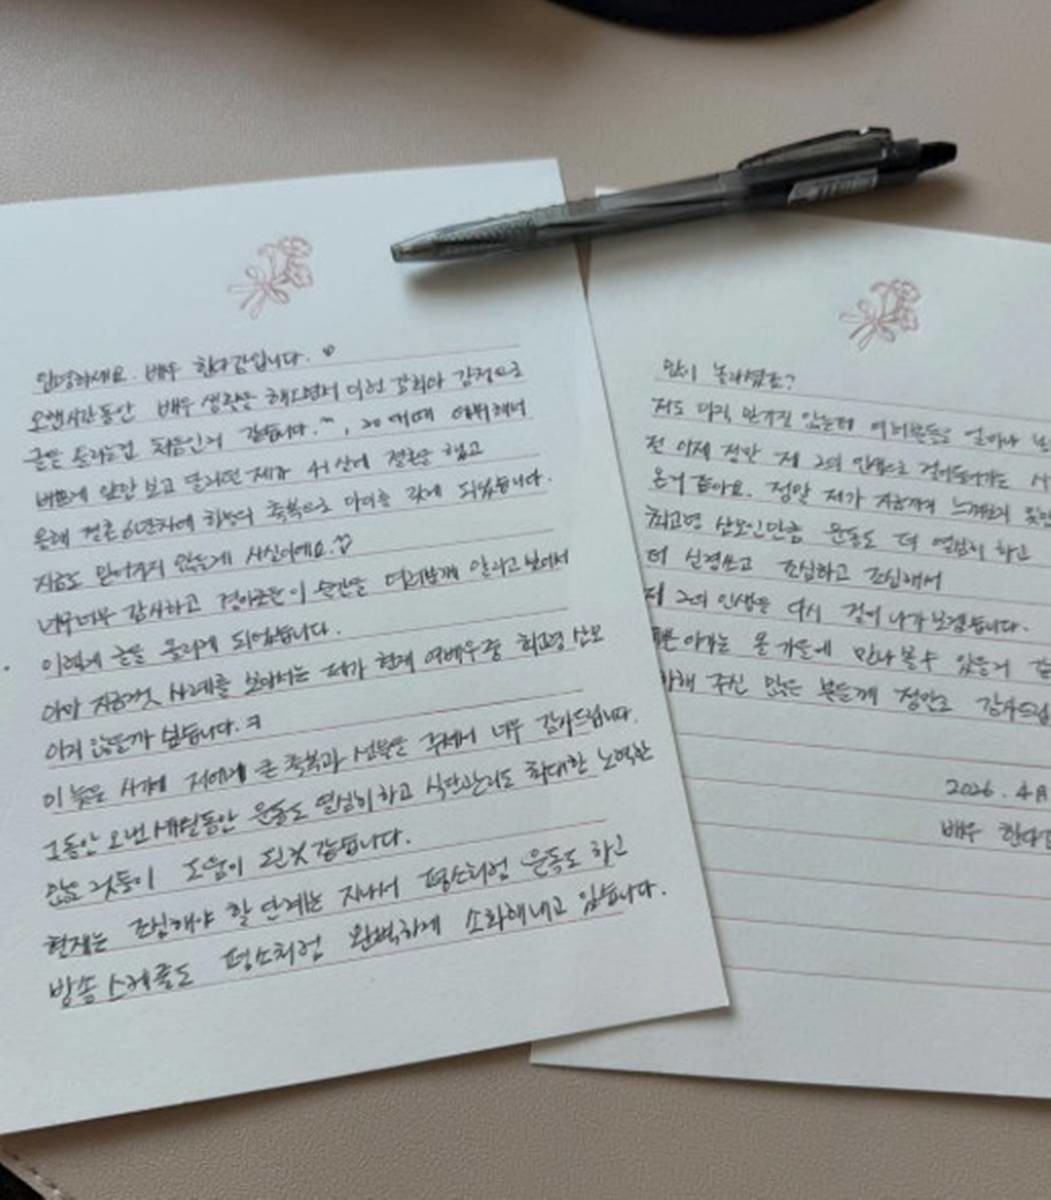 안녕하세요. 배우 한다감입니다. ♡
오랜시간동안 배우 생활을 해오면서 이런 감정으로
글을 올리는건 처음인거 같습니다.^^, 20대때 데뷔해서
바쁘게 앞만 보고 달리던 제가 41살에 결혼을 했고
올해 결혼 6년차에 하늘의 축복으로 아이를 갖게 되었습니다.
지금도 믿어지지 않는게 사실이에요.♡
너무너무 감사하고 경이로운 이 순간을 여러분께 알리고 싶어서
이렇게 글을 올리게 되었습니다.
아마 지금껏 사례를 보아서는 제가 현재 여배우중 최고령 산모
이지 않을까 싶습니다.ㅋ
이 늦은 시기에 저에게 큰 축복과 선물을 주셔서 너무 감사드립니다.
그동안 오랜세월동안 운동도 열심히 하고 식단관리도 최대한 노력한
많은 것들이 도움이 된것 같습니다.
현재는 조심해야 할 단계는 지나서 평소처럼 운동도 하고
방송 스케줄도 평소처럼 완벽하게 소화해내고 있습니다.
많이 놀라셨죠?
저도 아직 믿겨질 않는데 여러분들은 얼마나
전 이제 정말 제 2의 인생으로 걸어들어가는
온거 같아요. 정말 제가 지금까지 느껴보지 못한
최고령 산모인만큼 운동도 더 열심히 하고
더 신경쓰고 조심하고 조심해서
제 2의 인생을 다시 걸어 나가 보겠습니다.
아가는 올 가을에 만나볼수 있을거
해 주신 많은 분들께 정말로 감사드립
2026. 4月
배우 한다감